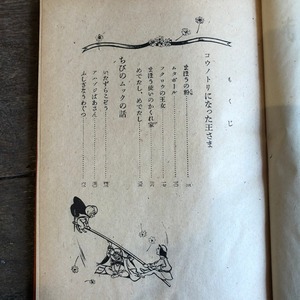 もくじ
コウノトリになった王さま
まほうの粉
ムタボール
フクロウの王女
まほう使いのかくれ家
めでたし、めでたし
ちびのムックの話
いたずらこぞう
アハブジばあさん
ふしぎなうわぐつ